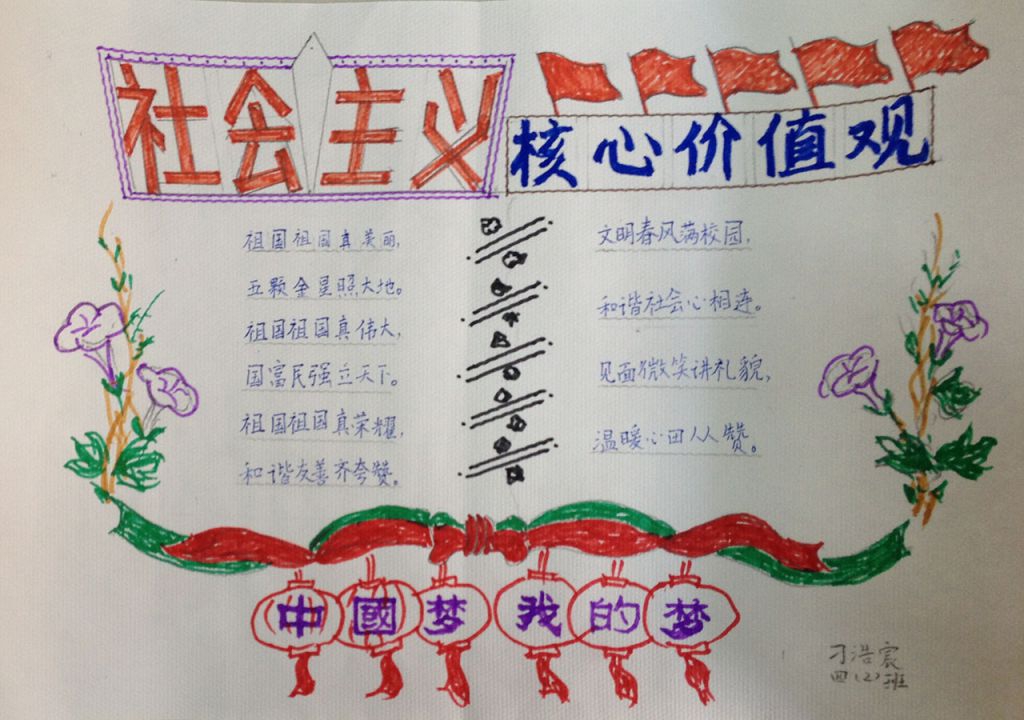 社会主义
核心价值观
祖国祖国真美丽,
五颗金星照大地。
祖国祖国真伟大,
国富民强立天下。
祖国祖国真荣耀,
和谐友善齐夸赞。
文明春风满校园,
和谐社会心相连。
见面微笑讲礼貌,
温暖心田人人赞。
中國梦我的梦
刁浩宸
四(2)班